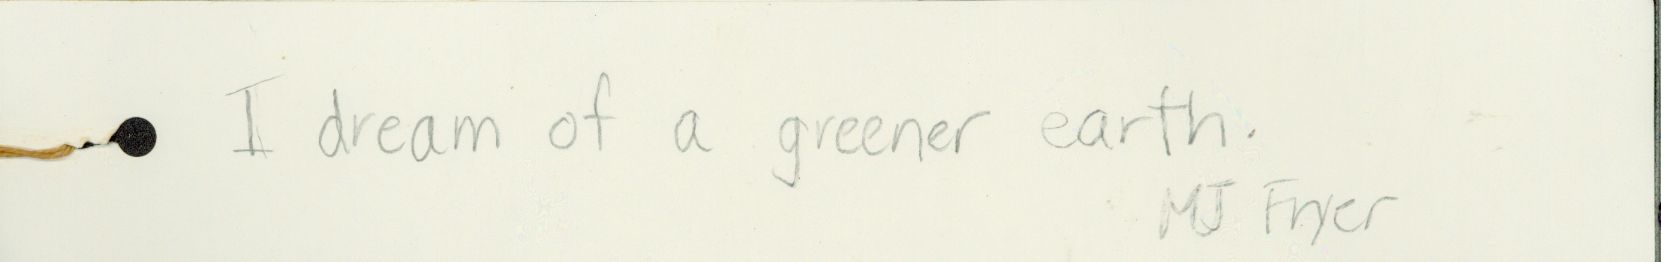 I dream of a greener earth.
MJ Fryer